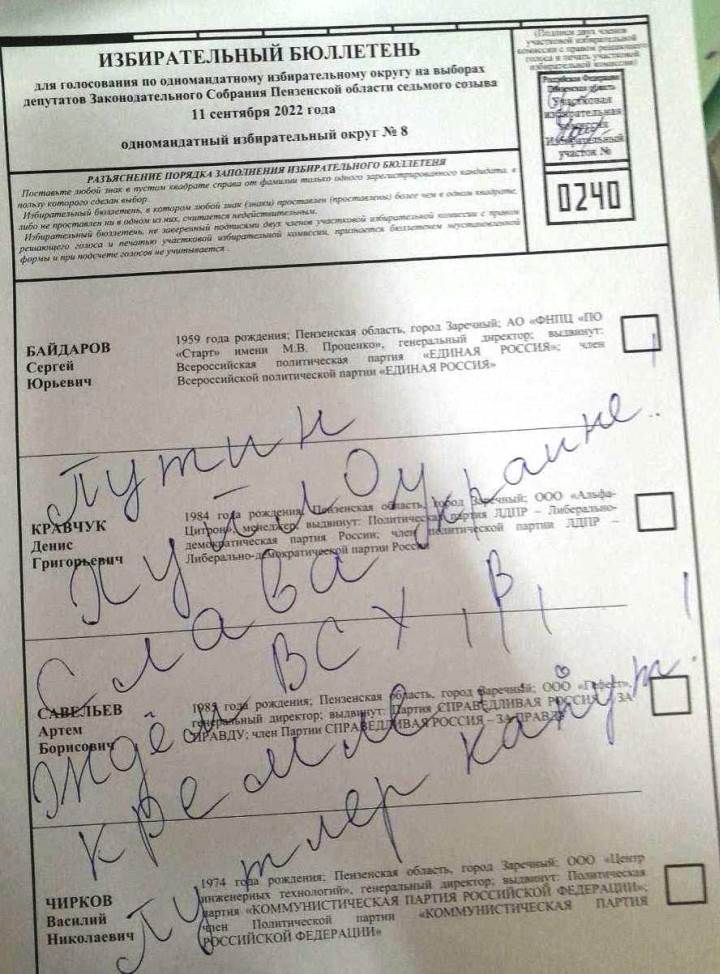 ИЗБИРАТЕЛЬНЫЙ БЮЛЛЕТЕНЬ
для голосования по одномандатному избирательному округу на выборах
депутатов Законодательного Собрания Пензенской области седьмого созыва
11 сентября 2022 года
одномандатный избирательный округ № 8
(Подписи двух членов
участковой избирательной
комиссии с правом решающего
голоса и печать участковой
избирательной комиссии)
Российская Федерация
Пензенская область
Участковая
избирательная
комиссия
Избирательный
участок №
0240
РАЗЪЯСНЕНИЕ ПОРЯДКА ЗАПОЛНЕНИЯ ИЗБИРАТЕЛЬНОГО БЮЛЛЕТЕНЯ
Поставьте любой знак в пустом квадрате справа от фамилии только одного зарегистрированного кандидата, в
пользу которого сделан выбор.
Избирательный бюллетень, в котором любой знак (знаки) проставлен (проставлены) более чем в одном квадрате,
либо не проставлен ни в одном из них, считается недействительным.
Избирательный бюллетень, не заверенный подписями двух членов участковой избирательной комиссии с правом
решающего голоса и печатью участковой избирательной комиссии, признается бюллетенем неустановленной
формы и при подсчете голосов не учитывается.
БАЙДАРОВ
Сергей
Юрьевич
1959 года рождения; Пензенская область, город Заречный; АО «ФНПЦ «ПО
«Старт» имени М.В. Проценко», генеральный директор; выдвинут:
Всероссийская политическая партия «ЕДИНАЯ РОССИЯ»; член
Всероссийской политической партии «ЕДИНАЯ РОССИЯ»
Путин
КРАВЧУК
Денис
Григорьевич
1984 года рождения; Пензенская область, город Заречный; ООО «Альфа-
Цитрон», менеджер; выдвинут: Политическая партия ЛДПР – Либерально-
демократическая партия России; член политической партии ЛДПР –
Либерально-демократической партии России
Слава Украине!
ВСХ
САВЕЛЬЕВ
Артем
Борисович
1985 года рождения; Пензенская область, город Заречный; ООО «Гефест»,
генеральный директор; выдвинут: Партия СПРАВЕДЛИВАЯ РОССИЯ – ЗА
ПРАВДУ; член Партии СПРАВЕДЛИВАЯ РОССИЯ – ЗА ПРАВДУ
Ждём В
Кремле
Путлер капут!
ЧИРКОВ
Василий
Николаевич
1974 года рождения; Пензенская область, город Заречный; ООО «Центр
инженерных технологий», генеральный директор; выдвинут: Политическая
партия «КОММУНИСТИЧЕСКАЯ ПАРТИЯ РОССИЙСКОЙ ФЕДЕРАЦИИ»;
член Политической партии «КОММУНИСТИЧЕСКАЯ ПАРТИЯ
РОССИЙСКОЙ ФЕДЕРАЦИИ»